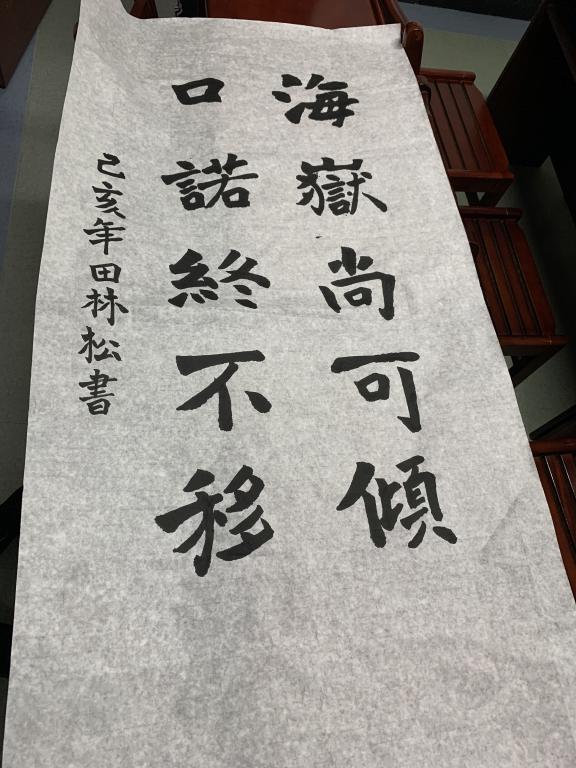 海嶽尚可傾
口諾終不移
己亥年田林松書